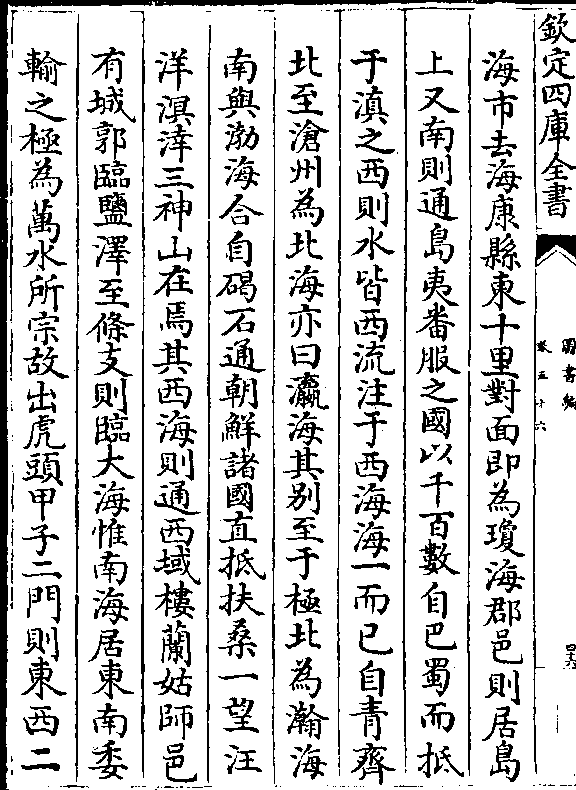 欽定四庫全書
圖書編
卷五十六
海市去海康縣東十里對面即為瓊海郡邑則居島
上又南則通島夷番服之國以千百數自巴蜀而抵
于滇之西則水皆西流注于西海海一而已自青齊
北至滄州為北海亦曰瀛海其别至于極北為瀚海
南與渤海合自碣石通朝鮮諸國直抵扶桑一望汪
洋溟涬三神山在焉其西海則通西域樓蘭姑師邑
有城郭臨鹽澤至條支則臨大海惟南海居東南委
輸之極為萬水所宗故出虎頭甲子二門則東西二